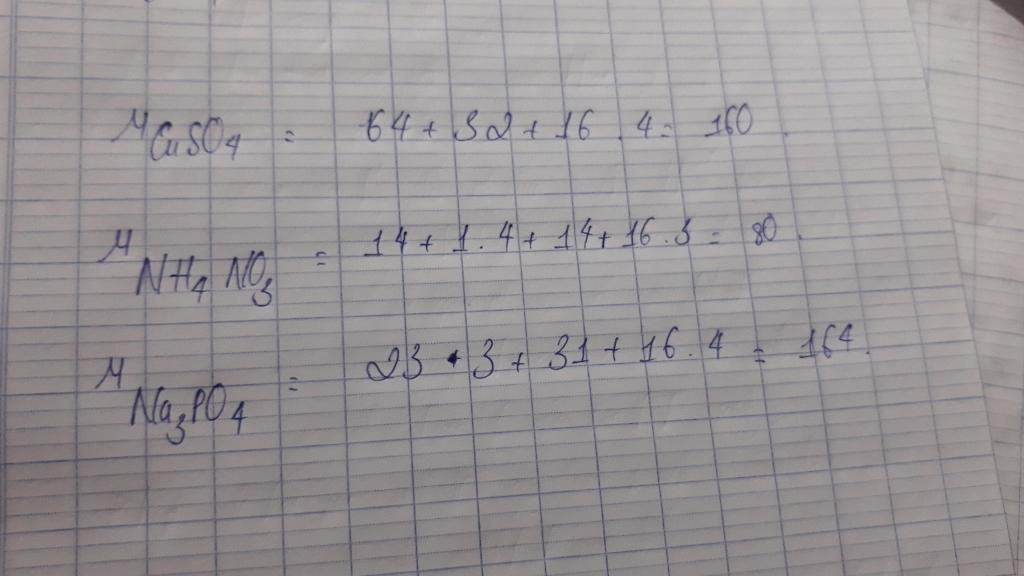 M CuSO4 = 64 + 32 + 16 . 4 = 160.
M NH4 NO3 = 14 + 1 . 4 + 14 + 16 . 3 = 80.
M Na3PO4 = 23 . 3 + 31 + 16 . 4 = 164.